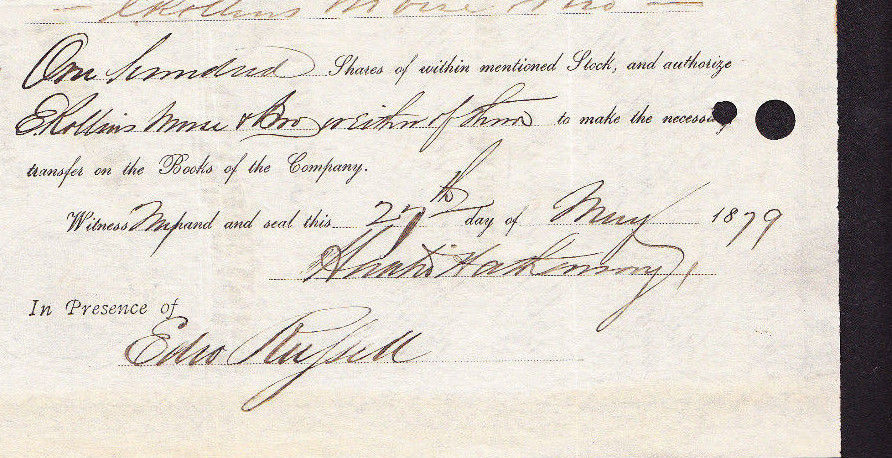 E Rollins Morse & Bro
One hundred Shares of within mentioned Stock, and authorize
E Rollins Morse & Bro or either of them to make the necessary
transfer on the Books of the Company.
Witness my hand and seal this day of May 1879
Hathaway
In Presence of
Edw Russell